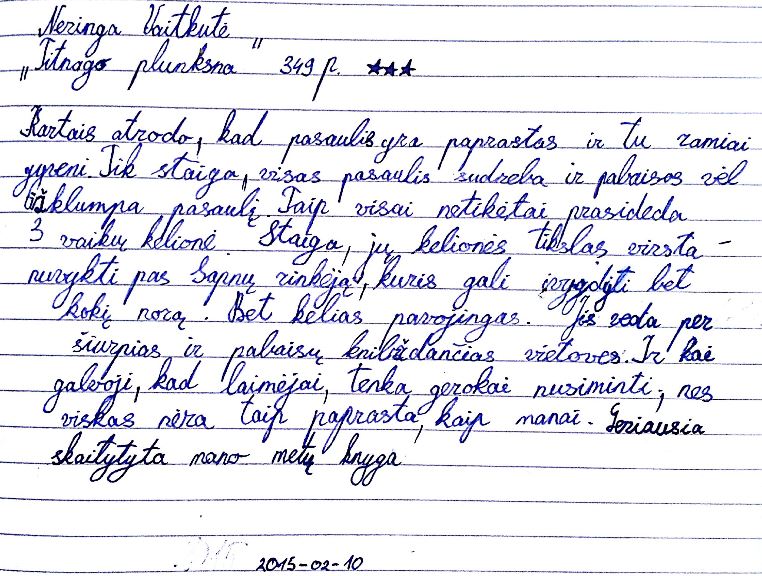 Neringa Vaitkutė
„Titnago plunksna" 349 p. ★★★
Kartais atrodo, kad pasaulis yra paprastas ir tu ramiai
gyveni. Tik staiga, visas pasaulis sudreba ir pabaisos vėl
užklumpa pasaulį. Taip visai netikėtai prasideda
3 vaikų kelionė. Staiga, jų kelionės tikslas virsta –
nuvykti pas Sapnų rinkėją, kuris gali įvygdyti bet
kokį norą. Bet kelias pavojingas. Jis veda per
šiurpias ir pabaisų knibždančias vietoves. Ir kai
galvoji, kad laimėjai, tenka gerokai nusiminti, nes
viskas nėra taip paprasta, kaip manai. Geriausia
skaitytyta mano metų knyga
2015-02-10